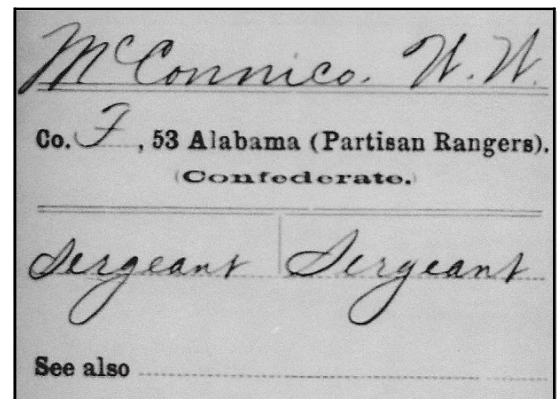 McConnico. W. W.
Co. F, 53 Alabama (Partisan Rangers).
(Confederate.)
Sergeant Sergeant
See also